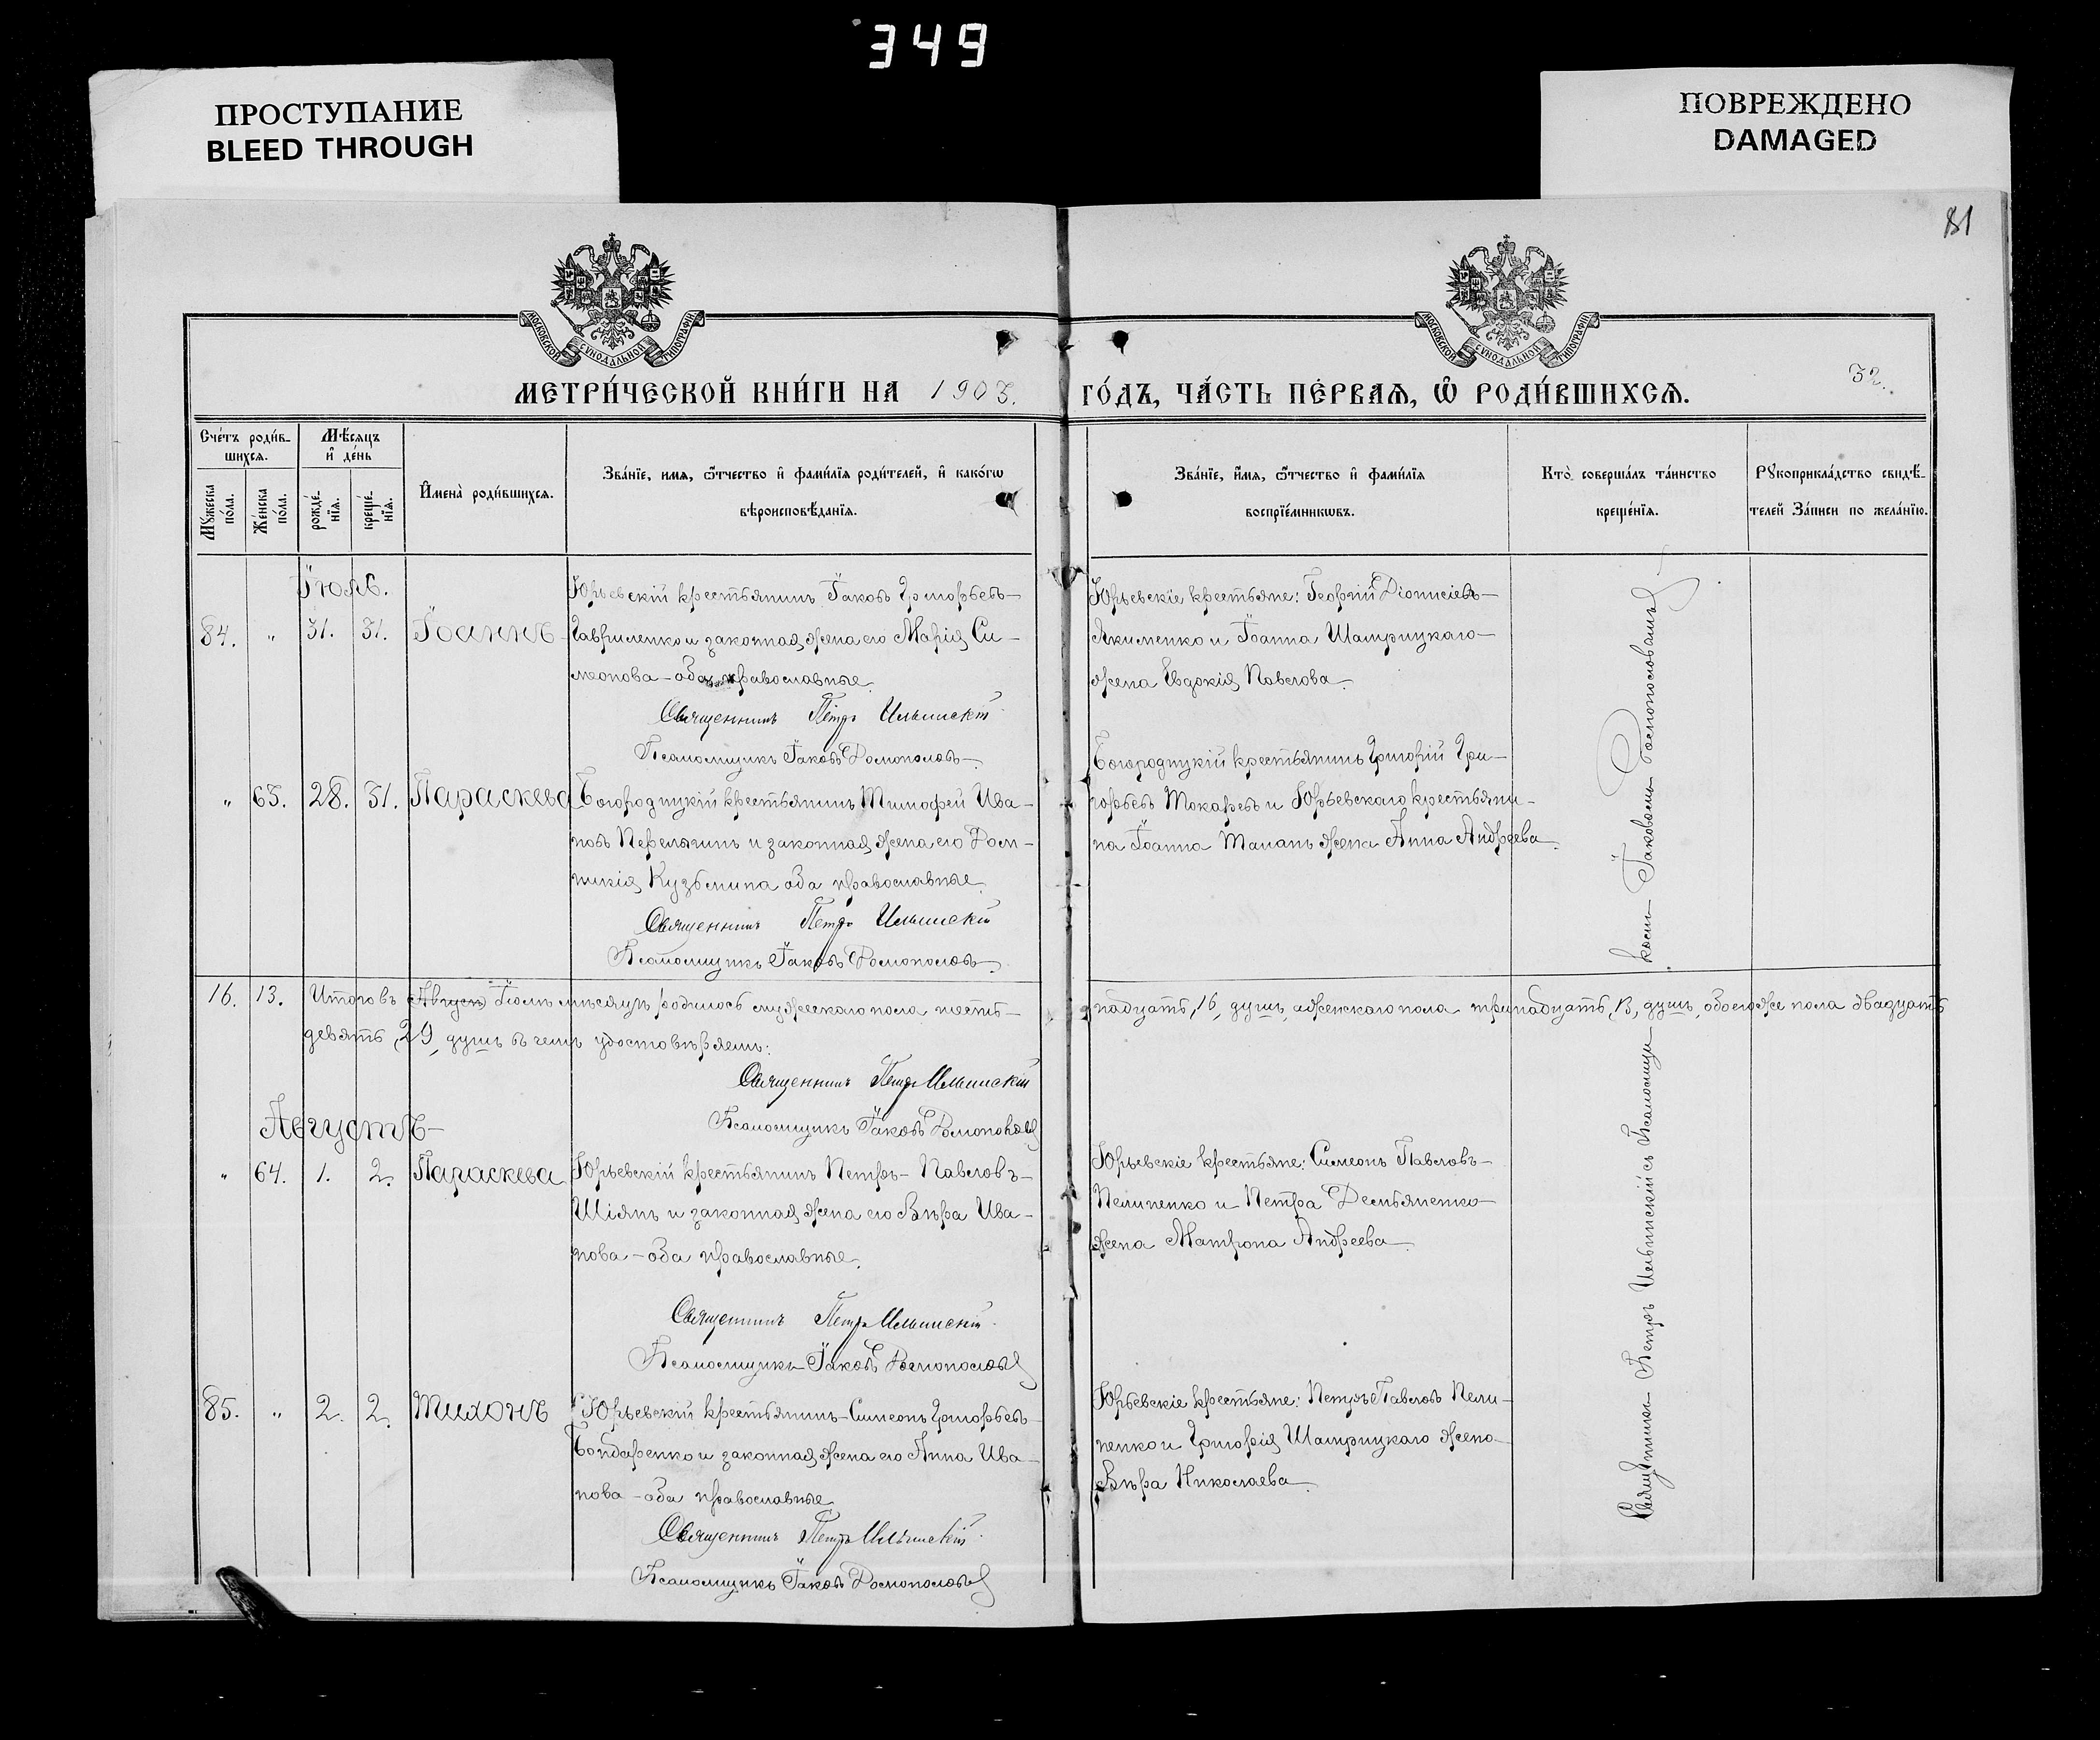 349
ПРОСТУПАНИЕ
BLEED THROUGH
ПОВРЕЖДЕНО
DAMAGED
81
МОСКОВСКОЙ СѴНОДАЛЬНОЙ ТИПОГРАФІИ
МОСКОВСКОЙ СѴНОДАЛЬНОЙ ТИПОГРАФІИ
МЕТРИ́ЧЕСКОЙ КНИ́ГИ НА 1903.
ГО́ДЪ, ЧА́СТЬ ПЕ́РВАЯ, Ѡ РОДИ́ВШИХСЯ.
32.
Сче́тъ роди́в-
шихся.
Мꙋжеска по́ла.
Же́нска по́ла.
Мѣ́сяцъ
и҆ де́нь
рожде́-
нїя.
креще́-
нїя.
И҆мена̀ роди́вшихся.
Зва́нїе, имя, ѻ҆́тчество и҆ фами́лїя роди́телей, и҆ како́гѡ
вѣроисповѣ́данїя.
Зва́нїе, и҆́мя, ѻ҆́тчество и҆ фами́лїя
воспрїе́мникѡвъ.
Кто̀ соверша́лъ та́инство
креще́нїя.
Рꙋкоприкла́дство свидѣ́-
телей За́писи по жела́нїю.
Іюль.
84. " 31. 31. Іоаннъ
Юрьевскій крестьянинъ Іаковъ Григорьевъ
Гавриленко и законная жена его Марія Си-
меонова - оба православные.
Священникъ Петръ Ильинскій
Псаломщикъ Іаковъ
Юрьевскіе крестьяне: Георгій Діонисіевъ
Якименко и Іоанна Шатрицкаго
жена Евдокія Павлова.
" 63. 28. 31. Параскева
Богородицкій крестьянинъ Тимофей Ива-
новъ Перелыгинъ и законная жена его Дом-
никія Кузьмина оба православные.
Священникъ Петръ Ильинскій
Псаломщикъ Іаковъ
Богородицкій крестьянинъ Григорій Гри-
горьевъ Токаревъ и Юрьевскаго крестьяни-
на Іоанна жена Анна Андреева.
16. 13. Итого въ Августѣ Іюлѣ мѣсяцѣ родилось мужескаго пола шест-
надцать, 16, душъ, а женскаго пола тринадцать, 13, душъ, обоего же пола двадцать
девять, 29, душъ въ чемъ удостовѣряемъ:
Священникъ Петръ Ильинскій
Псаломщикъ Іаковъ
Августъ
" 64. 1. 2. Параскева
Юрьевскій крестьянинъ Петръ Павловъ
Шіянъ и законная жена его Вѣра Ива-
нова - оба православные.
Священникъ Петръ Ильинскій
Псаломщикъ Іаковъ
Юрьевскіе крестьяне: Симеонъ Павловъ
Пелипенко и Петра Демьяненко
жена Матрона Андреева.
85. " 2. 2. Тихонъ
Юрьевскій крестьянинъ Симеонъ Григорьевъ
Бондаренко и законная жена его Анна Ива-
нова - оба православные
Священникъ Петръ Ильинскій
Псаломщикъ Іаковъ
Юрьевскіе крестьяне: Петръ Павловъ Пели-
пенко и Григорія Шатрицкаго жена
Вѣра Николаева.
Священникъ Петръ Ильинскій съ Псаломщи-
комъ Іаковомъ